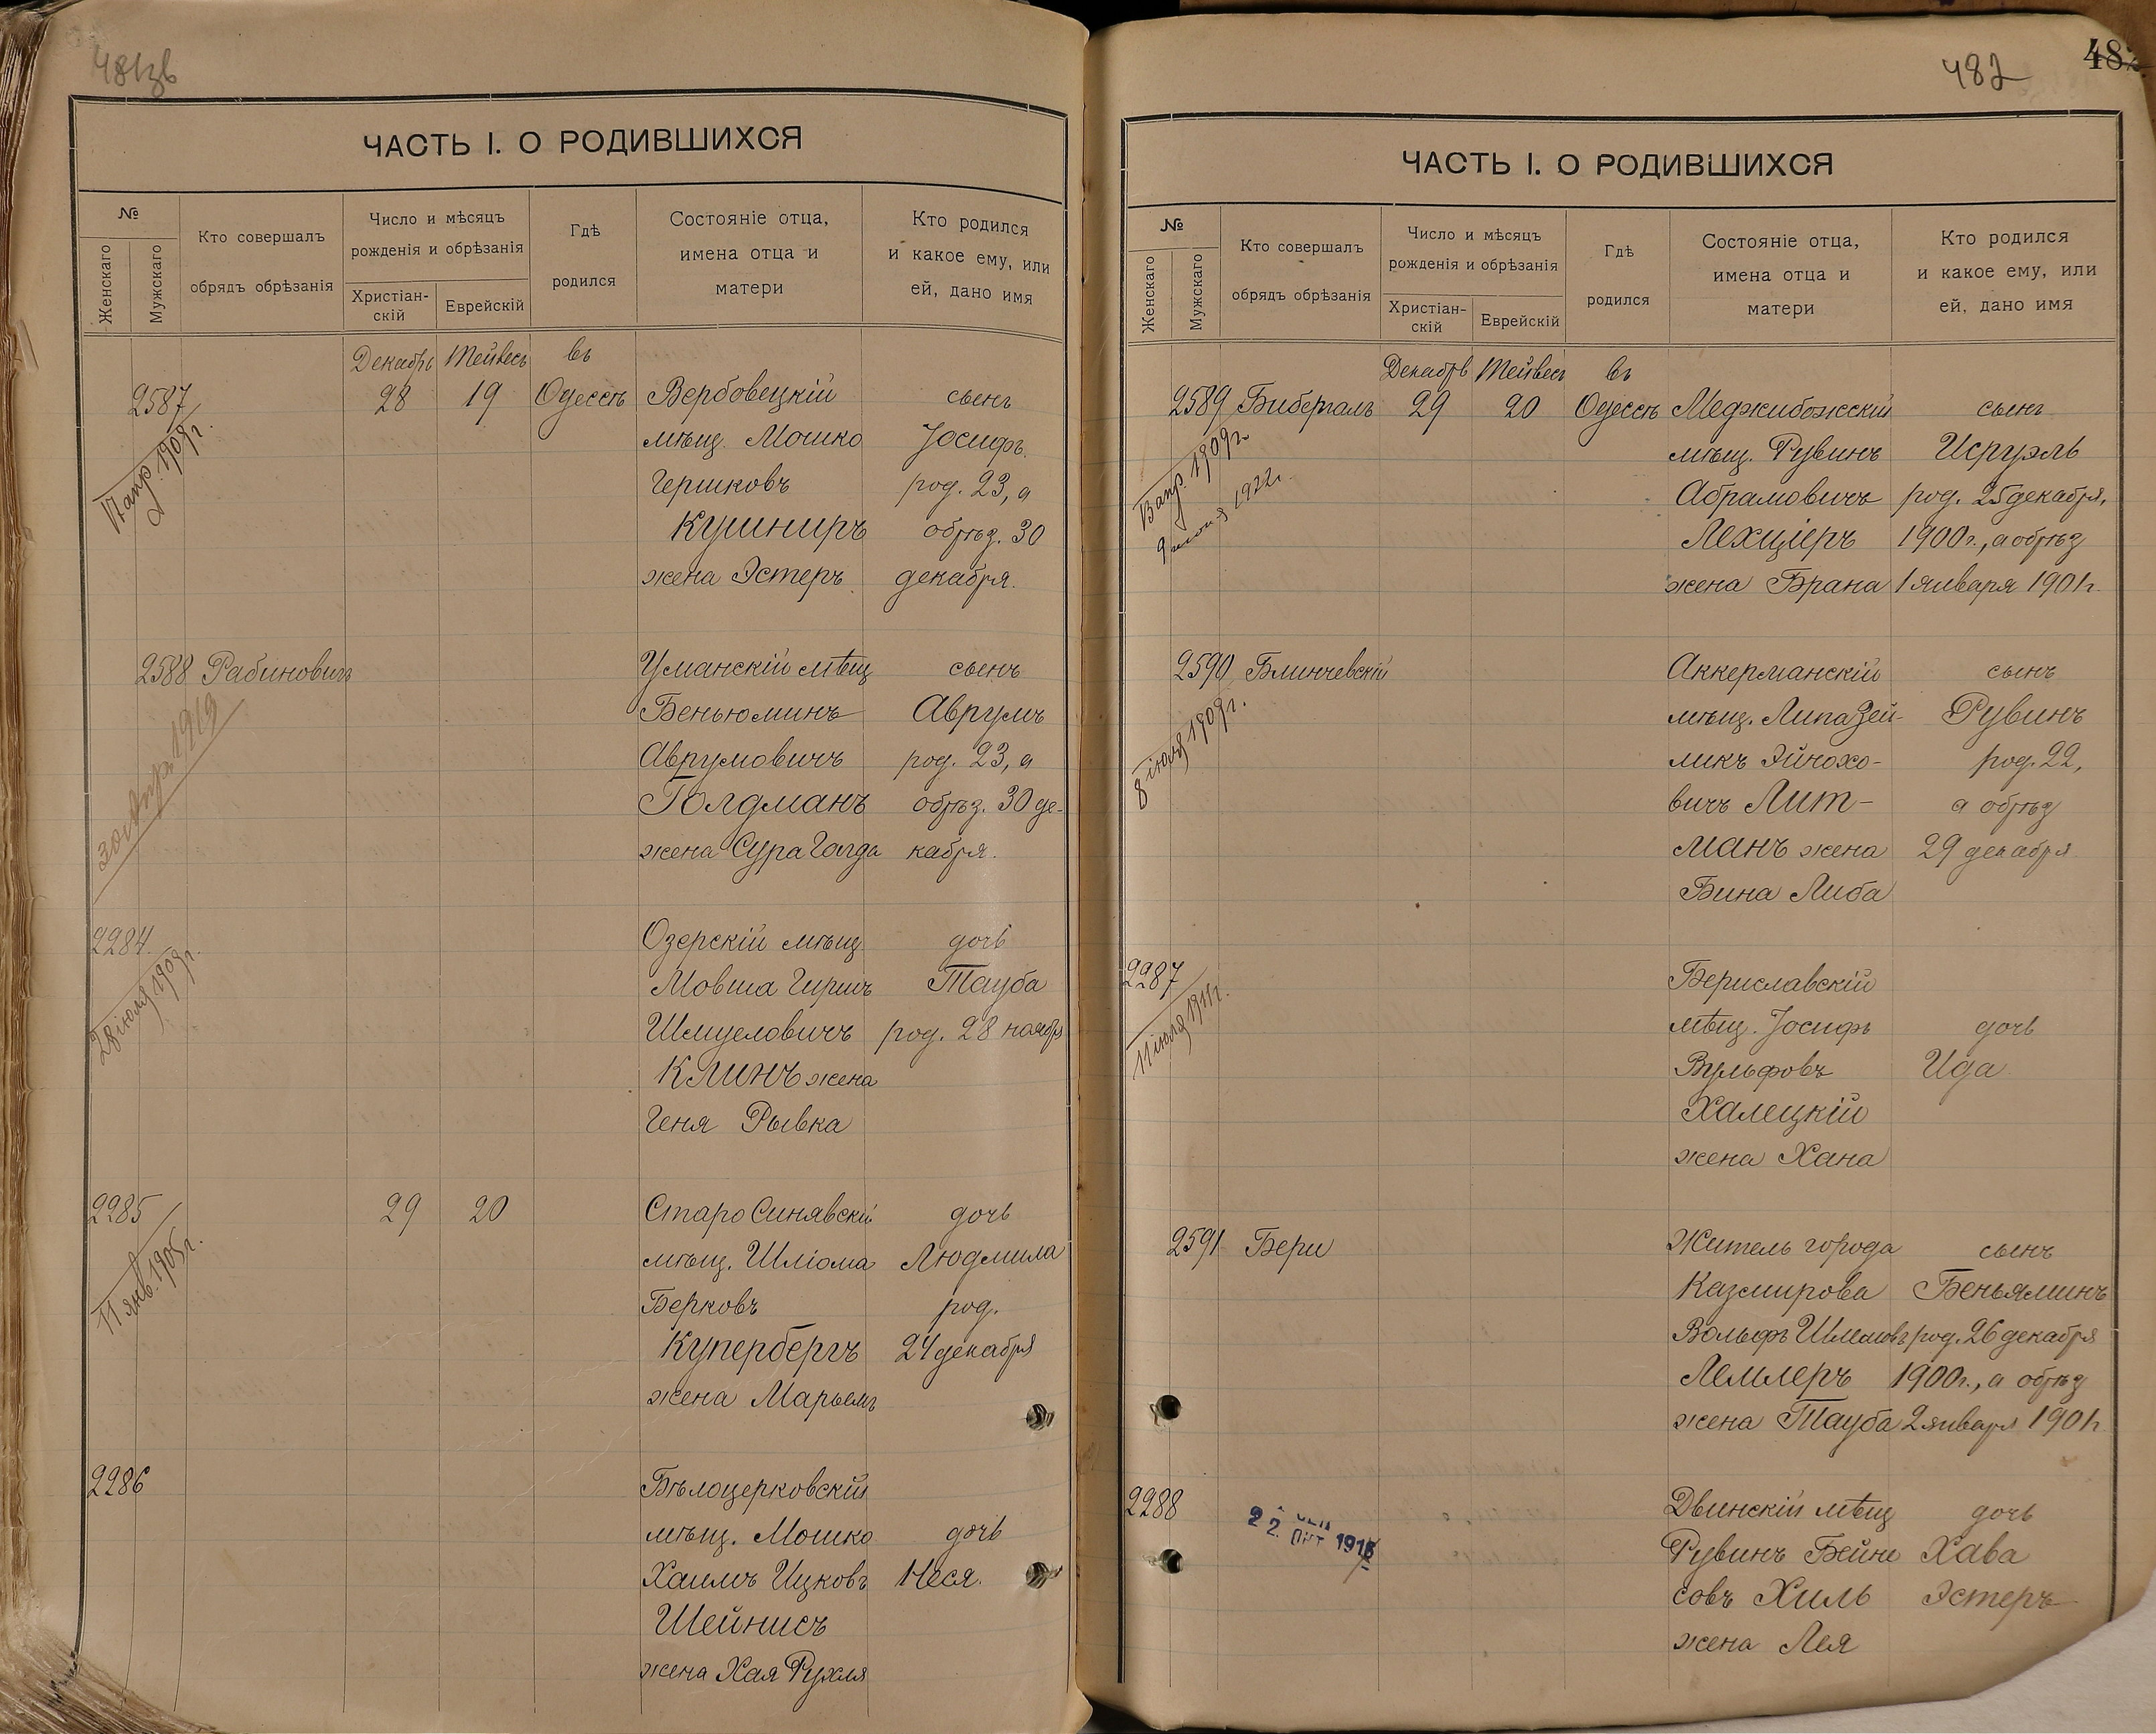 481зв
ЧАСТЬ I. О РОДИВШИХСЯ
№
Женскаго
Мужскаго
Кто совершалъ
обрядъ обрѣзанія
Число и мѣсяцъ
рожденія и обрѣзанія
Христіан-
скій
Еврейскій
Гдѣ
родился
Состояніе отца,
имена отца и
матери
Кто родился
и какое ему, или
ей, дано имя
Декабрь Тейвесъ въ
2587 28 19 Одессѣ Вербовецкій сынъ
17 апр. 1909 г.
мѣщ. Мошко Іосифъ
Гершковъ род. 23, а
Кушниръ обрѣз. 30
жена Эстеръ декабря.
2588 Рабиновичъ Уманскій мѣщ сынъ
1919
Беньюминъ Аврумъ
Аврумовичъ род. 23, а
Голдманъ обрѣз. 30 де-
жена Сура Голда кабря.
2284 Озерскій мѣщ дочь
28 іюля 1909 г.
Мовша Гиршъ Тауба
Шмуеловичъ род. 28 ноября
Клинъ жена
Геня Рывка
2285 29 20 Старо Синявскій дочь
11 янв. 1905 г.
мѣщ. Шліома Людмила
Берковъ род.
Купербергъ 24 декабря
жена Марьемъ
2286 Бѣлоцерковскій
мѣщ. Мошко дочь
Хаимъ Ицковъ Неся.
Шейнисъ
жена Хая Рухля
482
482
ЧАСТЬ I. О РОДИВШИХСЯ
№
Женскаго
Мужскаго
Кто совершалъ
обрядъ обрѣзанія
Число и мѣсяцъ
рожденія и обрѣзанія
Христіан-
скій
Еврейскій
Гдѣ
родился
Состояніе отца,
имена отца и
матери
Кто родился
и какое ему, или
ей, дано имя
Декабрь Тейвесъ въ
2589 Бибергалъ 29 20 Одессѣ Меджибожскій сынъ
апр. 1909 г.
1922 г.
мѣщ. Рувинъ Исруэль
Абрамовичъ род. 25 декабря,
Лехцiеръ 1900 г., а обрѣз
жена Брана 1 января 1901 г.
2590 Блинчевскій Аккерманскій сынъ
8 іюля 1909 г.
мѣщ. Липа Зей- Рувинъ
ликъ Эйнохо- род. 22,
вичъ Лит- а обрѣз
манъ жена 29 декабря
Бина Либа
2287 Бериславскій
11 іюля 1911 г.
мѣщ. Іосифъ дочь
Вульфовъ Ида
Халецкій
жена Хана
2591 Бери Житель города сынъ
Казмирова Беньяминъ
Вольфъ Шлемовъ род. 26 декабря
Лемлеръ 1900 г., а обрѣз
жена Тауба 2 января 1901 г.
2288 Двинскій мѣщ дочь
Рувинъ Бейне Хава
совъ Хиль Эстеръ
жена Лея